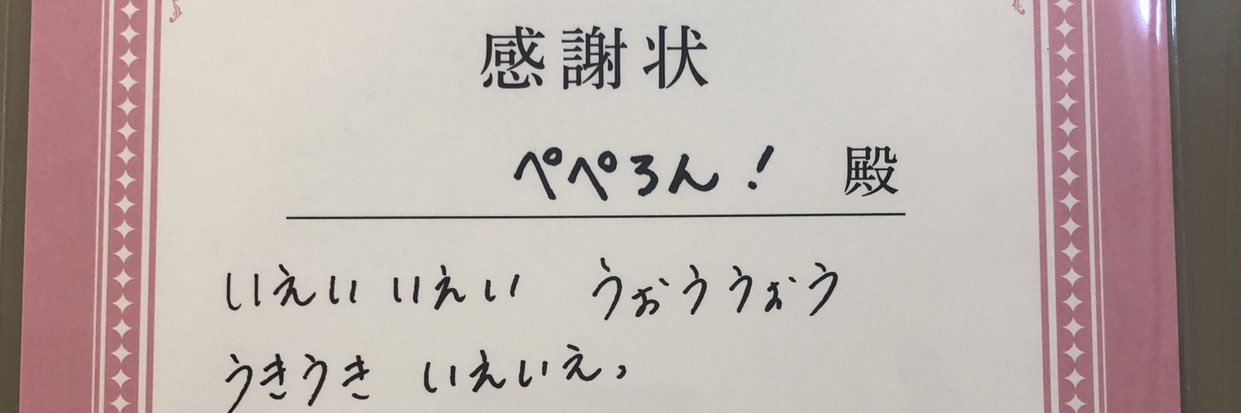 感謝状
ぺぺろん! 殿
いえい いえい うぉううぉう
うきうき いえいえ、